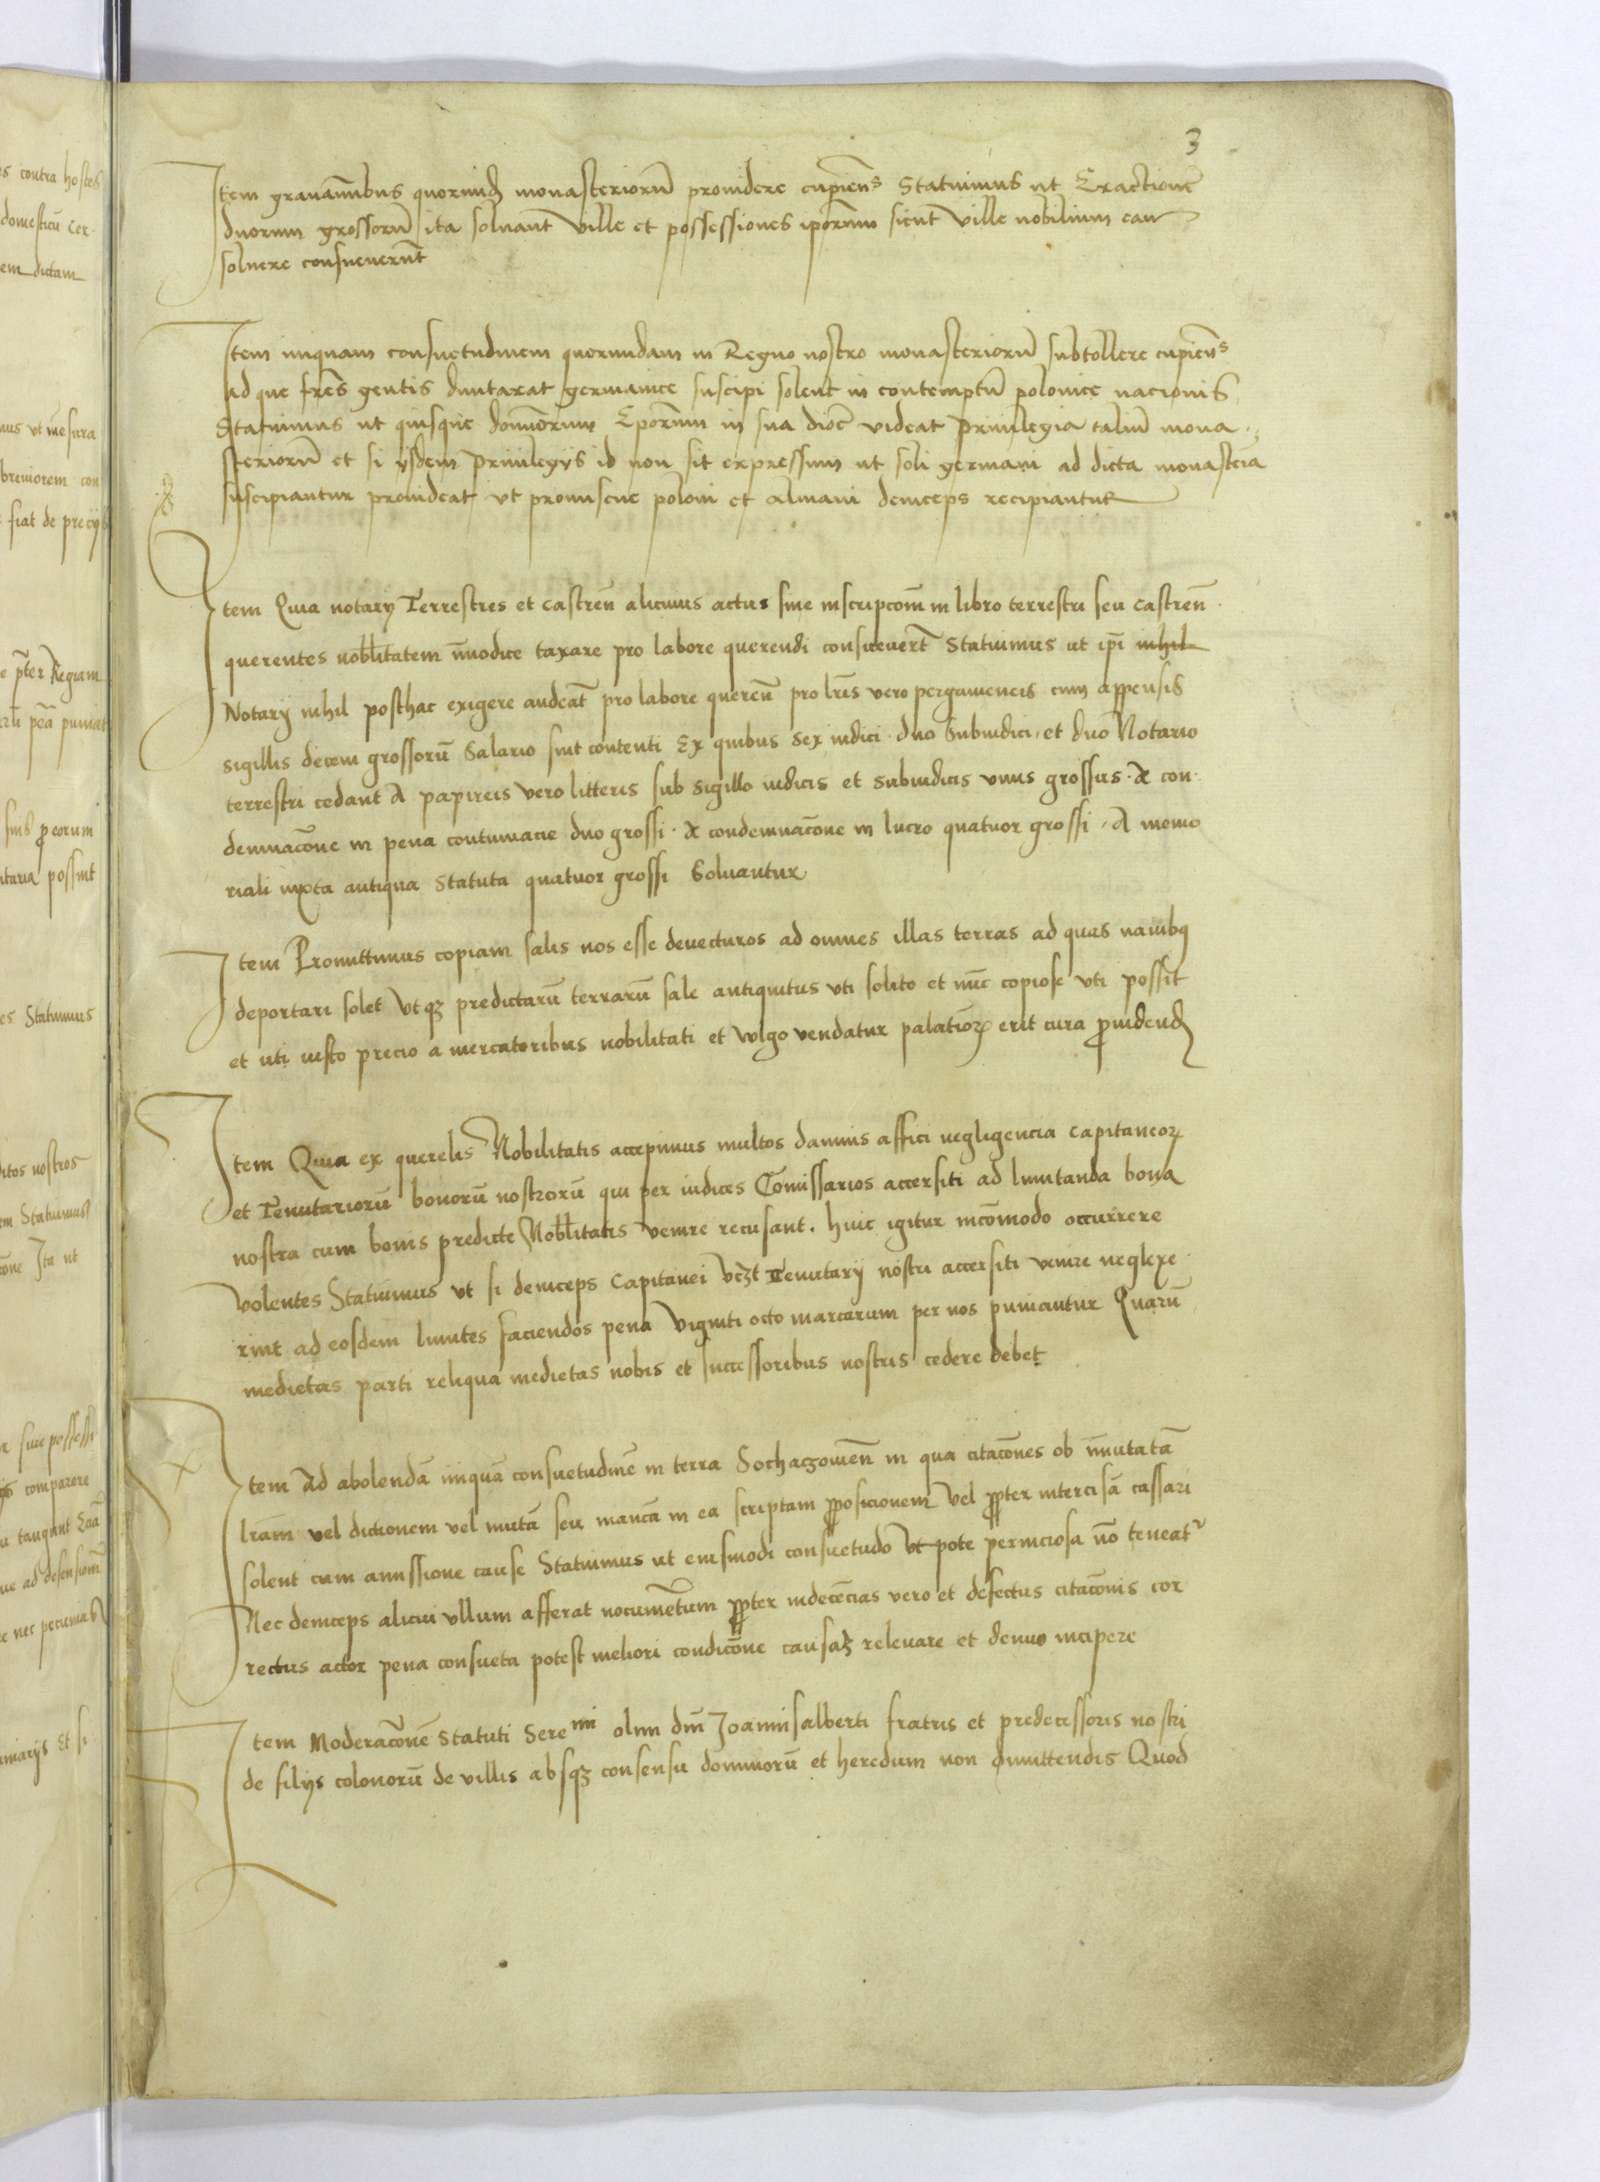 3
Item grauaminibus quorund monasteriorū prouidere cupiens Statuimus ut Exactionē
duorum grossorū ita soluant ville et possessiones ipōrum sicut ville nobilium eam
soluere consueuerūt
Item iniquam consuetudinem quorundam in Regno nostro monasteriorū subtollere cupiens
ad que frēs gentis duntaxat germanice suscipi solent in contemptū polonice nacionis
Statuimus ut quisque domīorum Epōrum in sua dioc videat priuilegia taliū mona
steriorū et si ijsdem priuilegijs id non sit expressum ut soli germani ad dicta monasteria
suscipiantur prouideat ut promiscue poloni et almani deinceps recipiantur
Item Quia notarij Terrestres et castreñ alicuius actus siue inscripcōm in libro terrestri seu castreñ
querentes nobilitatem īmodice taxare pro labore querendi consueuerūt Statuimus ut ipī nihil
Notarij nihil posthac exigere audeāt pro labore querēn pro lrīs vero pergameneis cum appensis
sigillis decem grossorū salario sint contenti Ex quibus sex iudici duo Subiudici et duo Notario
terrestri cedant A papireis vero litteris sub sigillo iudicis et subiudicis vnus grossus A con
demnacōne in pena contumacie duo grossi A condemnacōne in lucro quatuor grossi A memo
riali iuxta antiqua statuta quatuor grossi soluantur
Item Promittimus copiam salis nos esse deuecturos ad omnes illas terras ad quas nauibq
deportari solet utqz predictarū terrarū sale antiquitus vti solito et nūc copiose vti possit
et uti iusto precio a mercatoribus nobilitati et vulgo vendatur palatiorꝝ erit cura prouidend
Item Quia ex querelis Nobilitatis accepimus multos damnis affici negligencia capitaneorꝝ
et Tenutariorū bonorū nostrorū qui per iudices Comissarios accersiti ad limitanda bona
nostra cum bonis predicte Nobilitatis venire recusant. huic igitur incōmodo occurrere
volentes Statuimus ut si deinceps Capitanei vczt Tenutarij nostri accersiti venire neglexe
rint ad eosdem limites faciendos pena viginti octo marcarum per nos puniantur Quarū
medietas parti reliqua medietas nobis et successoribus nostris cedere debet
Item Ad abolendā iniquā consuetudinē in terra Sochaczouieñ in qua citacōnes ob īmutatā
lrām vel dictionem vel mutā seu mancā in ea scriptam proposicionem vel propter intercisā cassari
solent cum amissione cause Statuimus ut eiusmodi consuetudo ut pote perniciosa nō teneatr
Nec deinceps alicui vllum afferat nocumētum propter indecēcias vero et defectus citacōnis cor
rectus actor pena consueta potest meliori condicōne causaz releuare et denuo incipere
Item Moderacōnē statuti Sere mi olim dnī Joannisalberti fratris et predecessoris nostri
de filijs colonorū de villis absqz consensu dominorū et heredum non dimittendis Quod